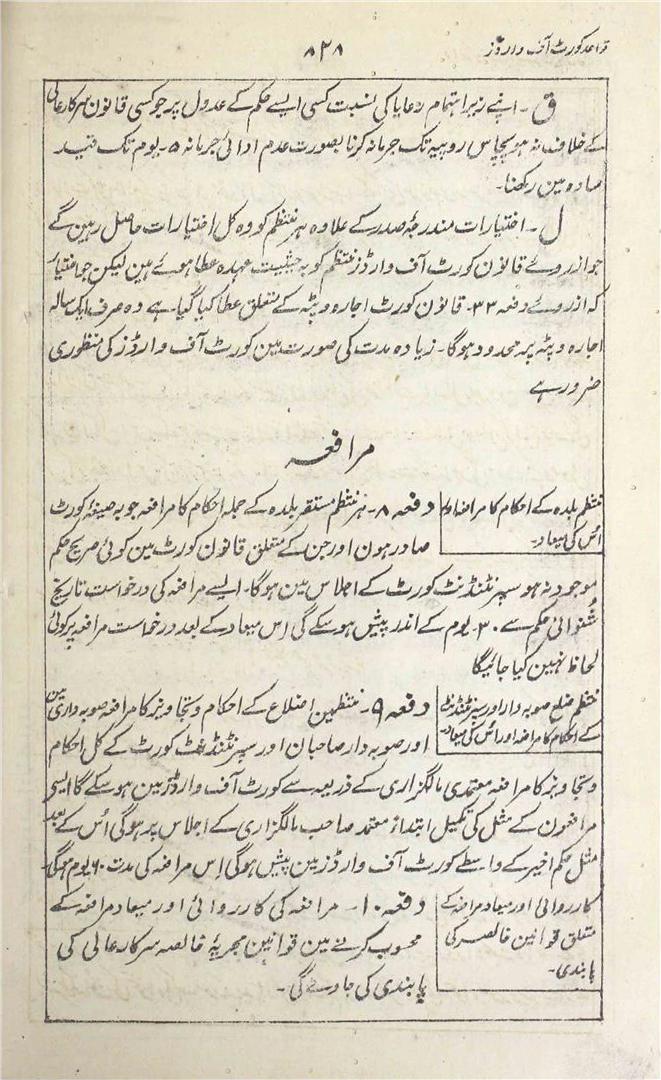 قواعد کورٹ آف وارڈز
۸۲۸
ق ۔ اپنے زیر اہتمام رعایا کی نسبت کسی ایسے حکم کے عدول پر جو کسی قانون سرکار عالی
کے خلاف نہ ہو پچاس روپیہ تک جرمانہ کرنا بصورت عدم ادائی جرمانہ ۵۔ یوم تک قید
سادہ مین رکھنا۔
ل ۔ اختیارات مندرجۂ صدر کے علاوہ ہر منتظم کو وہ کل اختیارات حاصل رہین گے
جو ازروے قانون کورٹ آف وارڈز منتظم کو بہ حیثیت عہدہ عطا ہوئے ہین لیکن جو اختیار
کہ ازروے دفعہ ۳۳۔ قانون کورٹ اجارہ و پٹہ کے متعلق عطا کیا گیا ہے وہ صرف ایک سالہ
اجارہ و پٹہ پر محدود ہوگا۔ زیادہ مدت کی صورت مین کورٹ آف وارڈز کی منظوری
ضرور ہے
مرافعہ
منتظم بلدہ کے احکام کا مرافعہ اور
اُس کی میعاد۔
دفعہ ۸۔ ہر منتظم مستقر بلدہ کے جملہ احکام کا مرافعہ جو بہ صیغۂ کورٹ
صادر ہون اور جن کے متعلق قانون کورٹ مین کوئی صریح حکم
موجود نہ ہو سپرنٹنڈنٹ کورٹ کے اجلاس مین ہوگا۔ ایسے مرافعہ کی درخواست تاریخ
شنوائی حکم سے ۳۰۔ یوم کے اندر پیش ہو سکے گی اِس میعاد کے بعد درخواست مرافعہ پر کوئی
لحاظ نہین کیا جائیگا
منتظم ضلع صوبہ دار اور سپرنٹنڈنٹ
کے احکام کا مرافعہ اور اُس کی میعاد۔
دفعہ ۹۔ منتظمین اضلاع کے احکام و تجاویز کا مرافعہ صوبہ داری مین
اور صوبہ دار صاحبان اور سپرنٹنڈنٹ کورٹ کے کل احکام
و تجاویز کا مرافعہ معتمدی مالگزاری کے ذریعہ سے کورٹ آف وارڈز مین ہو سکے گا ایسی
مرافعون کے مثل کی تکمیل ابتداءً معتمد صاحب مالگزاری کے اجلاس پر ہوگی اُس کے بعد
مثل حکم اخیر کے واسطے کورٹ آف وارڈز مین پیش ہوگی اِس مرافعہ کی مدت ۶۰ یوم ہوگی۔
کارروائی اور میعاد مرافعہ کے
متعلق قوانین خالصہ کی
پابندی۔
دفعہ ۱۰۔ مرافعہ کی کارروائی اور میعاد مرافعہ کے
محسوب کرنے مین قوانین مجریۂ خالصہ سرکار عالی کی
پابندی کی جاوے گی۔